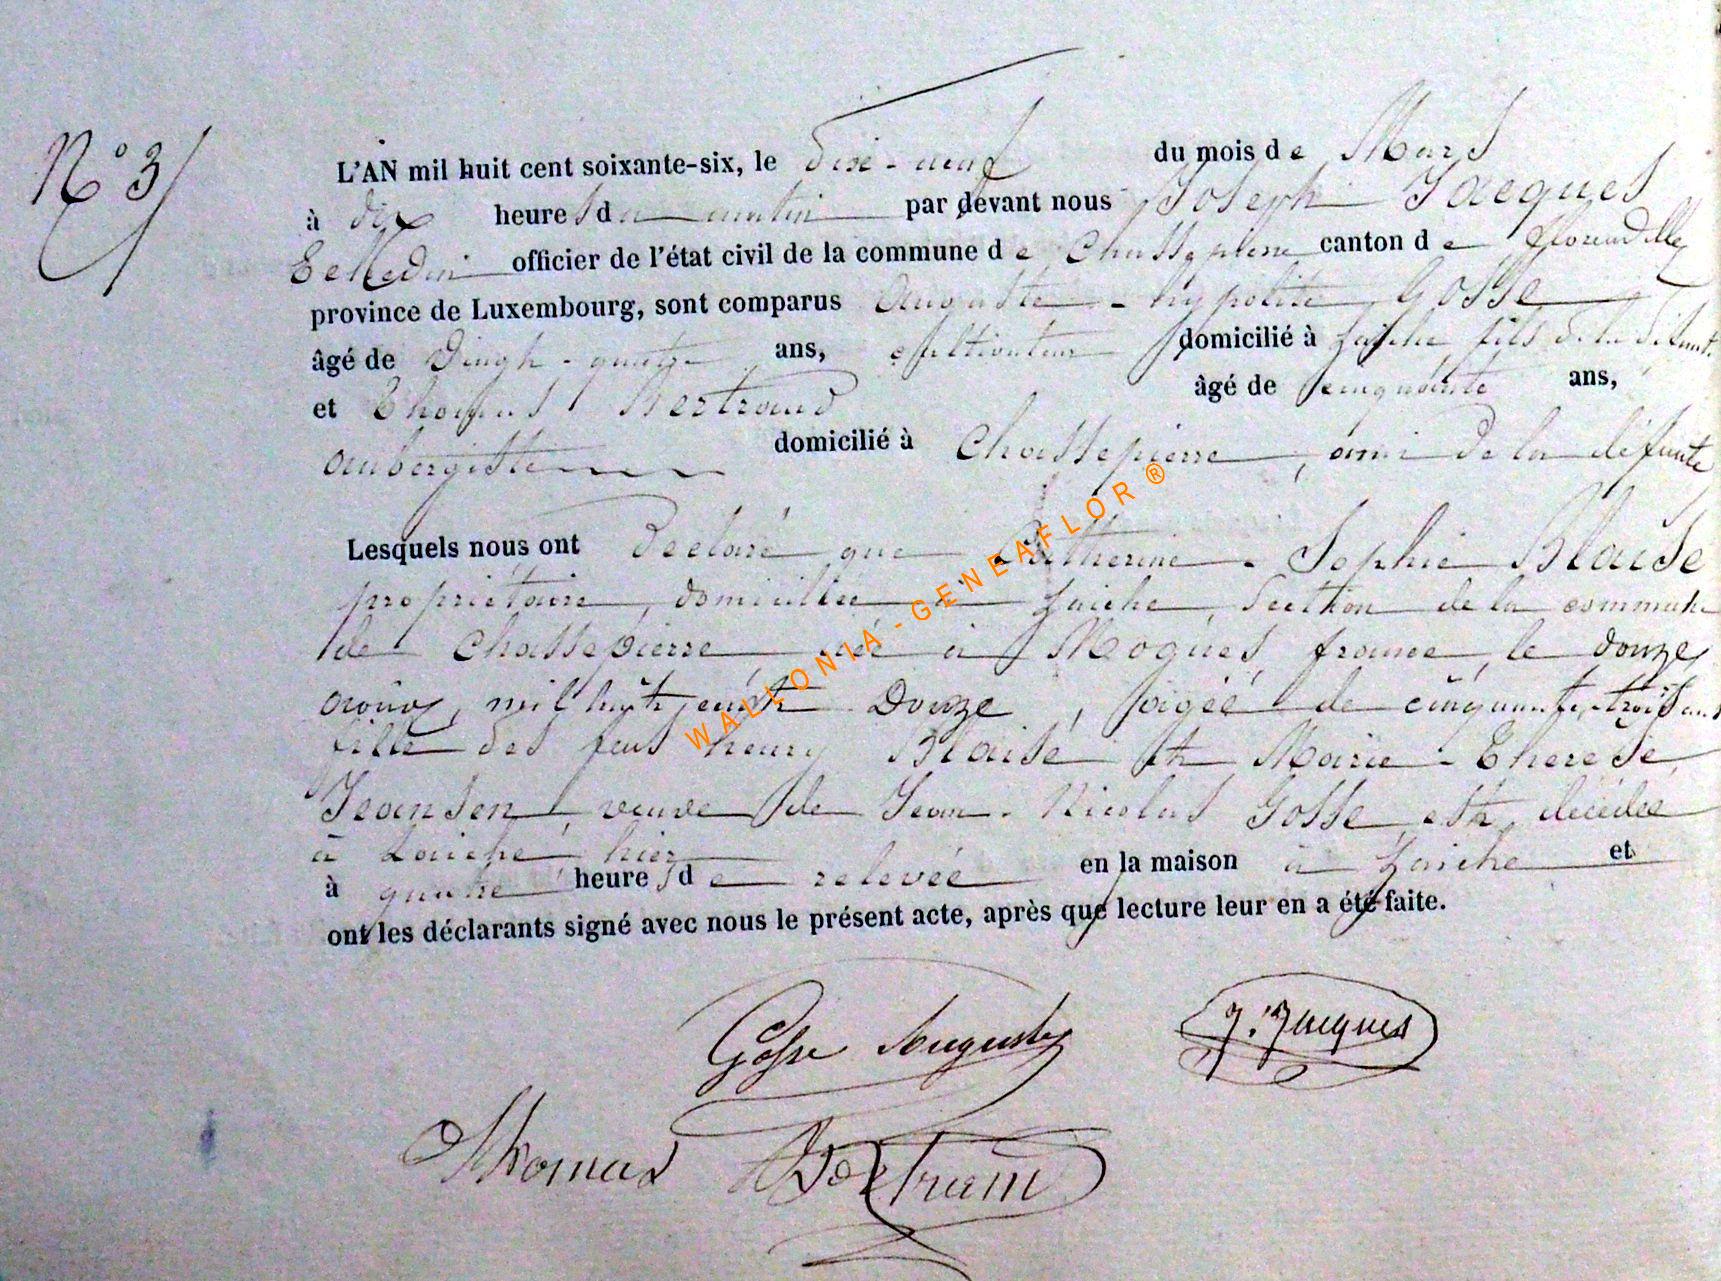 N° 3
L'AN mil huit cent soixante-six, le dix-neuf du mois de Mars
à dix heures du matin par devant nous Joseph Jacques
officier de l'état civil de la commune de Chassepierre canton de florenville
province de Luxembourg, sont comparus Auguste - hypolite Gosse
âgé de Vingt-quatre ans, cultivateur domicilié à Laiche fils de la défunte
et Thomas Bertrand âgé de cinquante ans,
aubergiste domicilié à Chassepierre, ami de la défunte
Lesquels nous ont Déclaré que Catherine - Sophie Blaise
propriétaire, domiciliée à Laiche, Section de la commune
de Chassepierre née à Mogues france, le douze
mil huit cent Douze, âgée de cinquante trois ans
fille des feus henry Blaise et Marie - Therese
Jeansen, veuve de Jean - Nicolas Gosse est décédée
à Laiche hier
à quatre heures de relevée en la maison à Laiche et
ont les déclarants signé avec nous le présent acte, après que lecture leur en a été faite.
Gosse Auguste J. Jacques
Thomas Bertrand
WALLONIA - GENEAFLOR ®